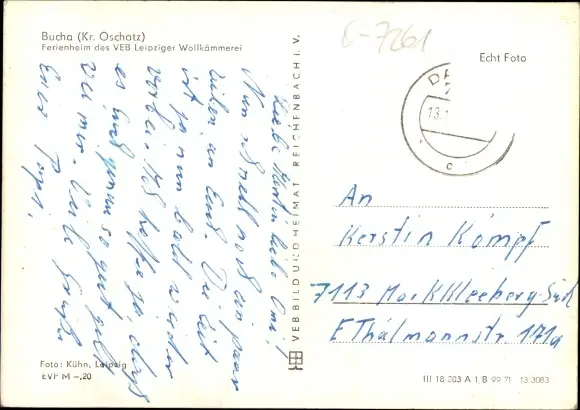 Bucha (Kr. Oschatz)
Ferienheim des VEB Leipziger Wollkämmerei
6-7261
Echt Foto
13.1
c
Liebe Kerstin, liebe Omi!
Nun schnell noch ein paar
Zeilen an Euch. Die Zeit
ist ja nun bald wieder
vorbei. Ich hoffe ja, daß
es Euch genau so gut geht
wie mir. Viele Grüße
Euer Papi.
VEB BILD UND HEIMAT REICHENBACH I. V.
An
Kerstin Kämpf
7113 Markkleeberg-Süd
E Thälmannstr 171a
Foto: Kühn, Leipzig
EVP M -,20
III 18 203 A 1 B 99 71 13 3083